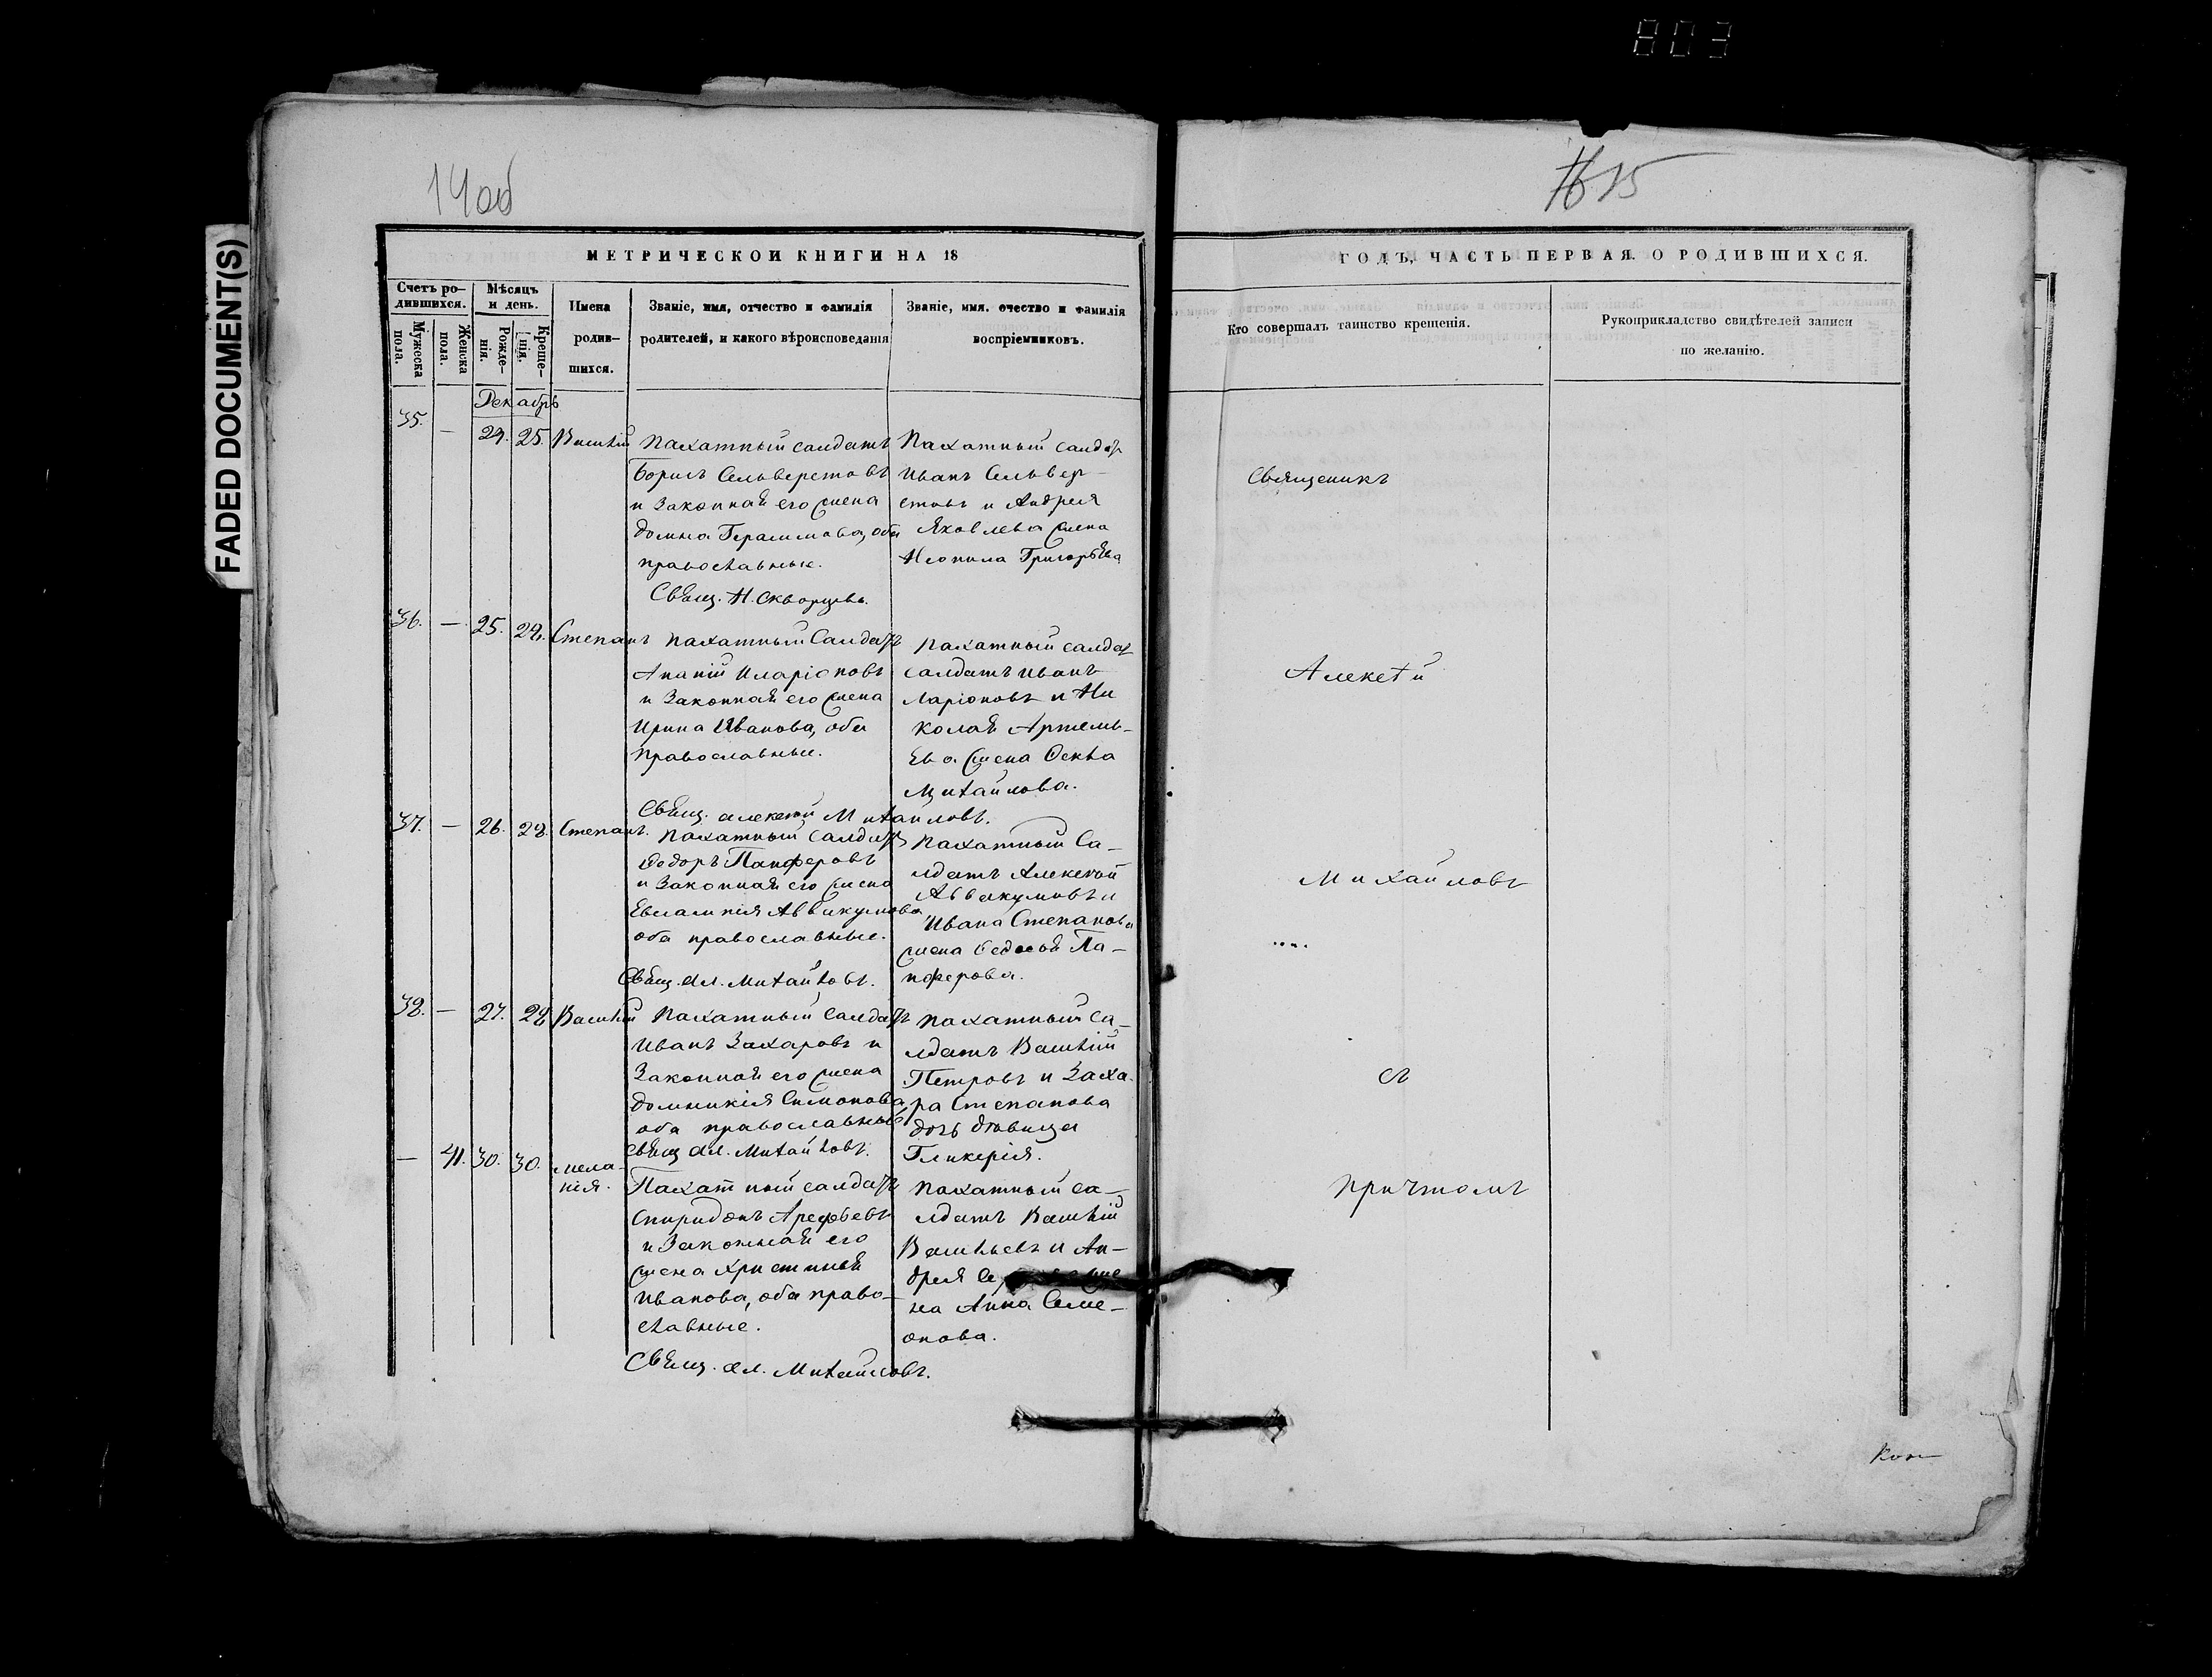 803
FADED DOCUMENT(S)
14 об
15
МЕТРИЧЕСКОЙ КНИГИ НА 18
ГОДЪ, ЧАСТЬ ПЕРВАЯ. О РОДИВШИХСЯ.
Счетъ ро-
дившихся.
Мужеска пола.
Женска пола.
Мѣсяцъ
и день.
Рожде-
нія.
Креще-
нія.
Имена
родив-
шихся.
Званіе, имя, отчество и фамилія
родителей, и какого вѣроисповеданія
Званіе, имя. очество и фамилія
воспріемниковъ.
Кто совершалъ таинство крещенія.
Рукоприкладство свидѣтелей записи
по желанію.
Декабрь
35. — 25. Василій
Пахатный салдатъ
Борисъ Сельверстовъ
и Законная его жена
Домна Герасимова, оба
православные.
Свящ. Н. Скворцовъ.
Пахатный салдат
Иванъ Сельвер-
стовъ и Андрея
Яковлева жена
Неонила Григорьева
36. — 25. Степанъ
Пахатный Салдатъ
Ананій Иларіоновъ
и Законная его жена
Ирина Иванова, оба
Православные.
Свящ. Алексѣй Михайловъ.
Пахатный салдат
салдатъ Иванъ
Ларіоновъ и Ни
колая Артемь-
ева жена
Михайлова.
37. — 26. 28. Степанъ.
Пахатный Салдатъ
Ѳодоръ Панферовъ
и Законная его жена
Евлампія Аввакумова
оба православные.
Свящ. Ал. Михайловъ.
Пахатный Са-
лдатъ Алексѣй
Аввакумовъ и
Ивана Степанова
жена Ѳедосья Па-
нферова.
38. — 27. 28 Василій
Пахатный Салдатъ
Иванъ Захаровъ и
Законная его жена
Домникія Симонова,
оба православные
Свящ Ал. Михайловъ.
Пахатный Са-
лдатъ Василій
Петровъ и Заха-
ра Степанова
дочь дѣвица
Гликерія.
— 41. 30. 30. Мела-
нія.
Пахатный салдатъ
Спиридонъ Арефьевъ
и Законная его
жена Христинья
Иванова, оба право-
славные.
Свящ. Ал. Михайловъ.
Пахатный са-
лдатъ Василій
Васильевъ и Ан-
дрея
на Анна Семе-
онова.
Священикъ
Алексѣй
Михайловъ
....
съ
причтомъ